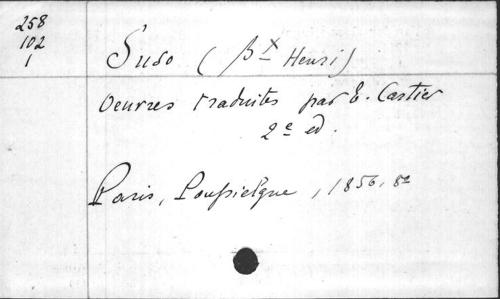 258
102
1
Suso (Bx Henri)
Oeuvres traduites par E. Cartier
2e ed.
Paris, Poussielgue, 1856, 8o